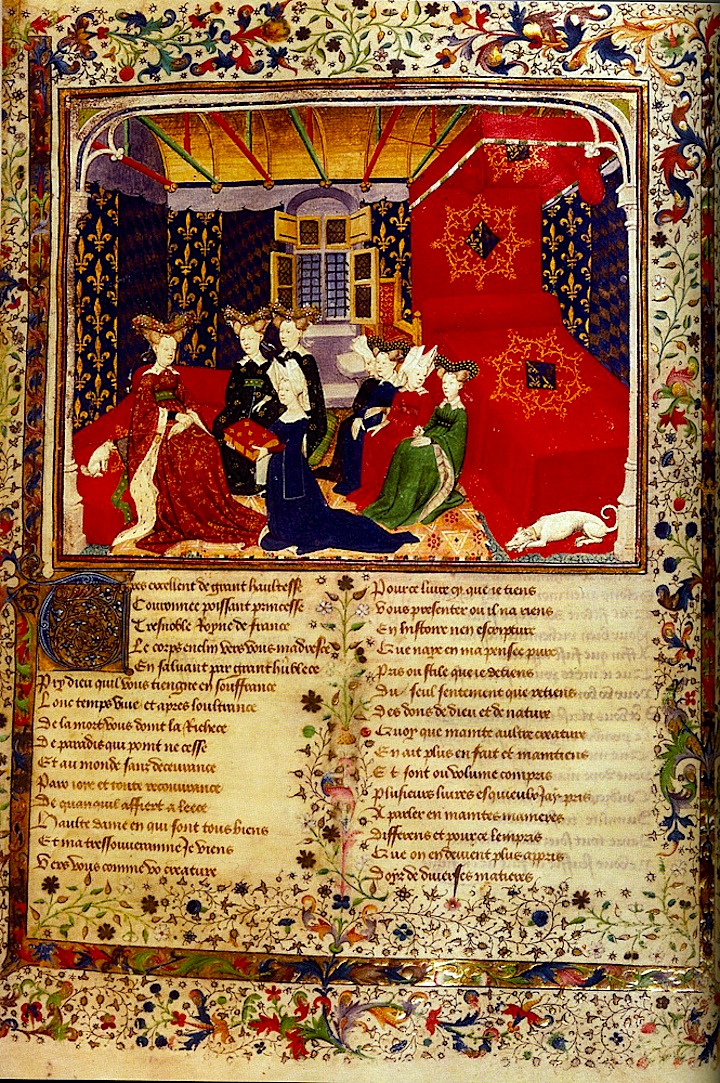 Tres excellent de grant haultesse
Couronnee poissant princesse
Tresnoble Royne de france
Le corps enclin vers vous madresce
En saluant par grant humblece
Pry dieu quil vous tiengne en souffrance
Lonc temps viue et apres loultrance
De la mort vous doint la richece
De paradis qui point ne cesse
Et au monde sanz deceurance
Paix ioye et toute recouurance
De quanquil affiert a leece
Haulte dame en qui sont tous biens
Et ma tressouueraine Je viens
Vers vous comme vo creature
Pour ce liure cy que ie tiens
Vous presenter ou il na riens
En histoire nen escripture
Que naye en ma pensee pure
Pris ou stile que ie detiens
Du seul sentement que retiens
Des dons de dieu et de nature
Quoy que mainte aultre creature
En ait plus en fait et maintiens
Et sont ou volume compris
Plusieurs liures esquieulx Jay pris
A parler en maintes manieres
Differens et pour ce lempris
Que on en deuient plus appris
Doyr de diuerses matieres